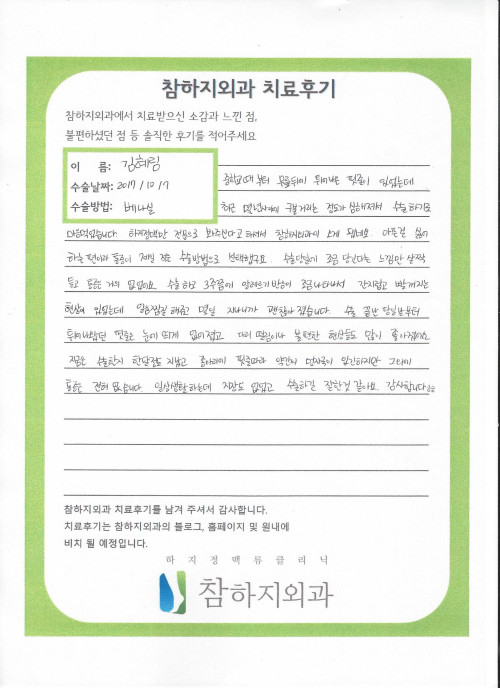 참하지외과 치료후기
참하지외과에서 치료받으신 소감과 느낀 점,
불편하셨던 점 등 솔직한 후기를 적어주세요
이 름: 김혜림
수술날짜: 2017 / 10 / 7
수술방법: 베나실
중학교때부터 무릎뒤에 튀어나온 핏줄이 있었는데
최근 몇년사이에 구불거리는 정도가 심해져서 수술하기로
마음먹었습니다. 하지정맥만 전문으로 봐주신다고 해서 참하지외과에 오게 됐네요. 아픈걸 싫어
하는 편이라 통증이 제일 적은 수술방법으로 선택했구요. 수술당일에 조금 당긴다는 느낌만 살짝
들고 통증은 거의 없었어요. 수술 하고 3주쯤에 알레르기 반응이 조금 나타나서 간지럽고 빨개지는
현상이 있었는데 얼음찜질 해주고 몇일 지나니까 괜찮아졌습니다. 수술 끝난 당일날부터
튀어나왔던 핏줄은 눈에 띄게 없어졌고 다리 떨림이나 불편한 현상들도 많이 좋아졌어요.
지금은 수술한지 한달정도 지났고 종아리에 핏줄따라 약간의 멍자국이 있긴하지만 그외에
통증은 전혀 없습니다. 일상생활 하는데 지장도 없었고 수술하길 잘한것 같아요. 감사합니다
참하지외과 치료후기를 남겨 주셔서 감사합니다.
치료후기는 참하지외과의 블로그, 홈페이지 및 원내에
비치 될 예정입니다.
하지정맥류클리닉
참하지외과